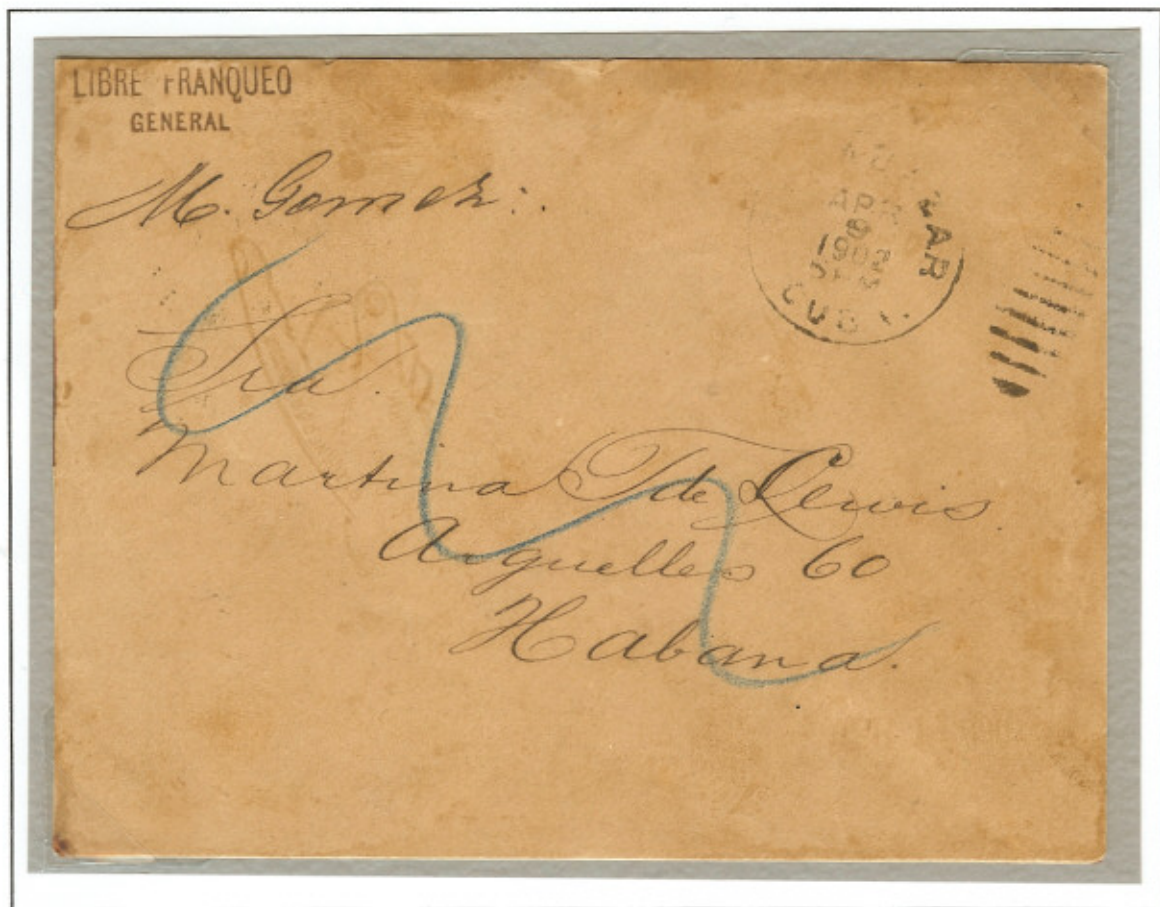 LIBRE FRANQUEO
GENERAL
M. Gomez.
APR
1902
CUBA.
Sra.
Martina T de Lewis.
Arguelles 60
Habana.